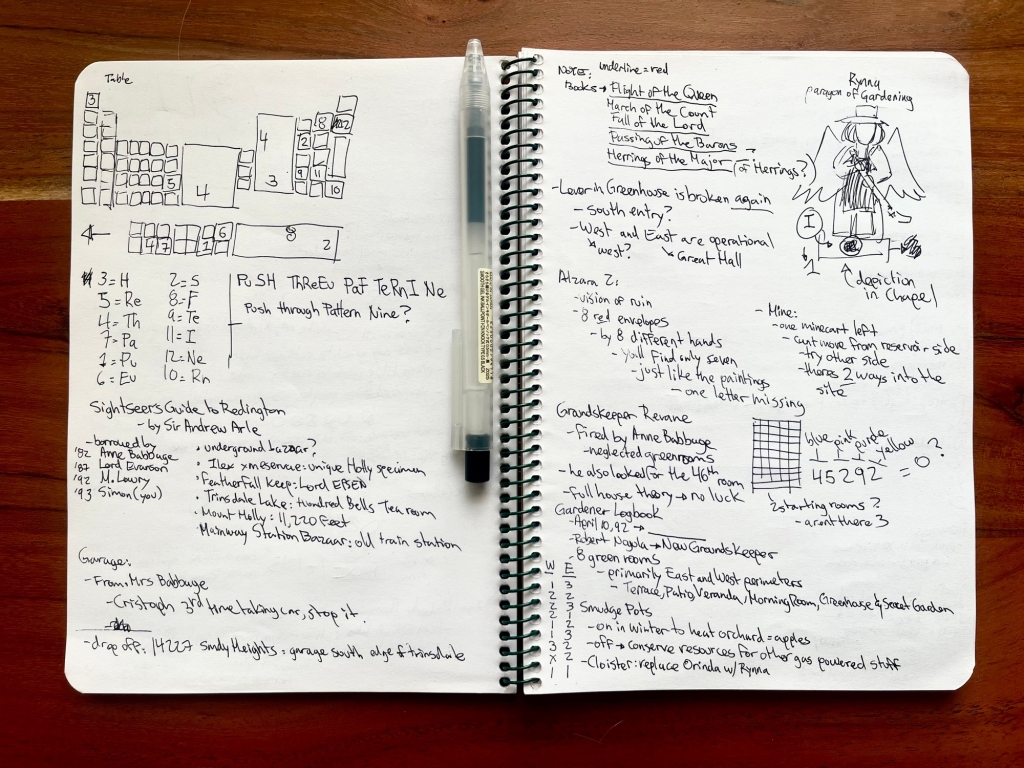 Table
3
5
4
4
3
8
12
2
9 11
10
6
4 7 1
8
2
3=H
5=Re
4=Th
7=Pa
1=Pu
6=Eu
2=S
8=F
9=Te
11=I
12=Ne
10=Rn
PuSH ThReEu PaF TeRnI Ne
Push through Pattern Nine?
Sightseer's Guide to Redington
- by Sir Andrew Arle
- borrowed by
'82 Anne Babbage
'87 Lord Evarson
'92 M. Lowry
'93 Simon (you)
• underground Bazaar?
• Ilex xmeservae: unique Holly specimen
• Featherfall Keep: Lord EBSEN
• Trinsdale Lake: Hundred Bells Tea room
• Mount Holly: 11,220 Feet
• Mainway Station Bazaar: old train station
Garage:
- From Mrs Babbage
- Cristoph 3rd time taking car, stop it.
- drop off: 14227 Sndy Heights: garage south edge of trinsdale
Note: underline = red
Books → Flight of the Queen
March of the Count
Fall of the Lord
Passing of the Barons
Herrings of the Major (or Herrings?
Rynna
paragon of Gardening
I
1
depiction
in Chapel
- Lever in Greenhouse is broken again
- South entry?
- West and East are operational
west?
Great Hall
Alzara 2:
- vision of ruin
- 8 red envelopes
- by 8 different hands
- you'll find only seven
- just like the paintings
- one letter missing
- Mine:
- one minecart left
- can't move from reservoir side
- try other side
- theres 2 ways into the
site
Grandskeeper Revane
- Fired by Anne Babbage
- neglected greenrooms
- he also looked for the 46th room
- full house theory → no luck
blue pink purple yellow
45292 = 0?
2 starting rooms?
- arent there 3
Gardener Logbook
- April 10, 92 →
- Robert Nagola → New Groundskeeper
- 8 green rooms
- primarily East and West perimeters
- Terrace, Patio, Veranda, Morning Room, Greenhouse & Secret Garden
W E
1 3
2 2
2 3
2 1
1 2
1 3
3 2
X 2
1 1
Smudge Pots
- on in winter to heat orchard = apples
- off → conserve resources for other gas powered stuff
- Cloister: replace Orinda w/ Rynna